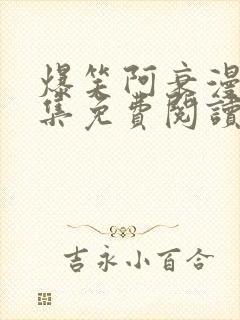 爆笑阿衰漫
集免費閱讀
吉永小百合